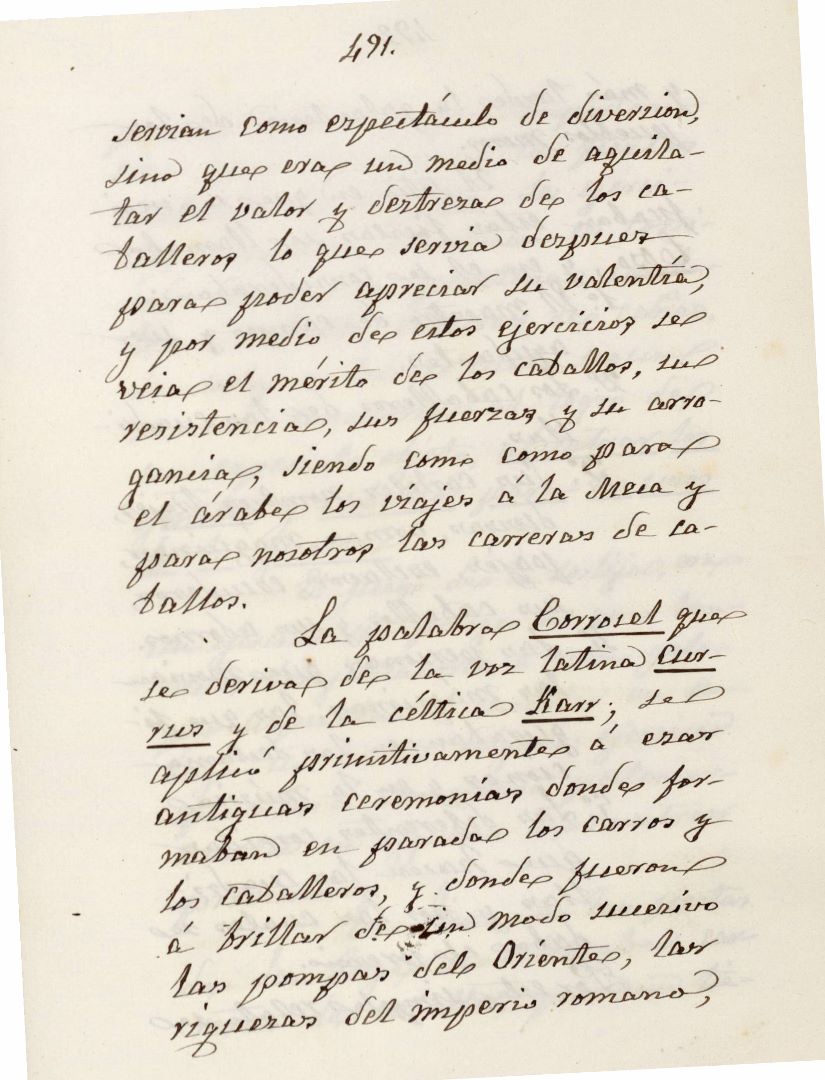 491.
servian como espectáculo de diversion,
sino que era un medio de aquila-
tar el valor y destreza de los ca-
balleros lo que servia despues
para poder apreciar su valentía,
y por medio de estos ejercicios se
veia el mérito de los caballos, su
resistencia, sus fuerzas y su arro-
gancia, siendo como como para
el árabe los viajes á la Meca y
para nosotros las carreras de ca-
ballos.
La palabra Corrosel que
se deriva de la voz latina Cur-
rus y de la céltica Karr; se
aplicó primitivamente á esas
antiguas ceremonias donde for-
maban en parada los carros y
los caballeros, y donde fueron
á brillar de un modo sucesivo
las pompas del Oriente, las
riquezas del imperio romano,